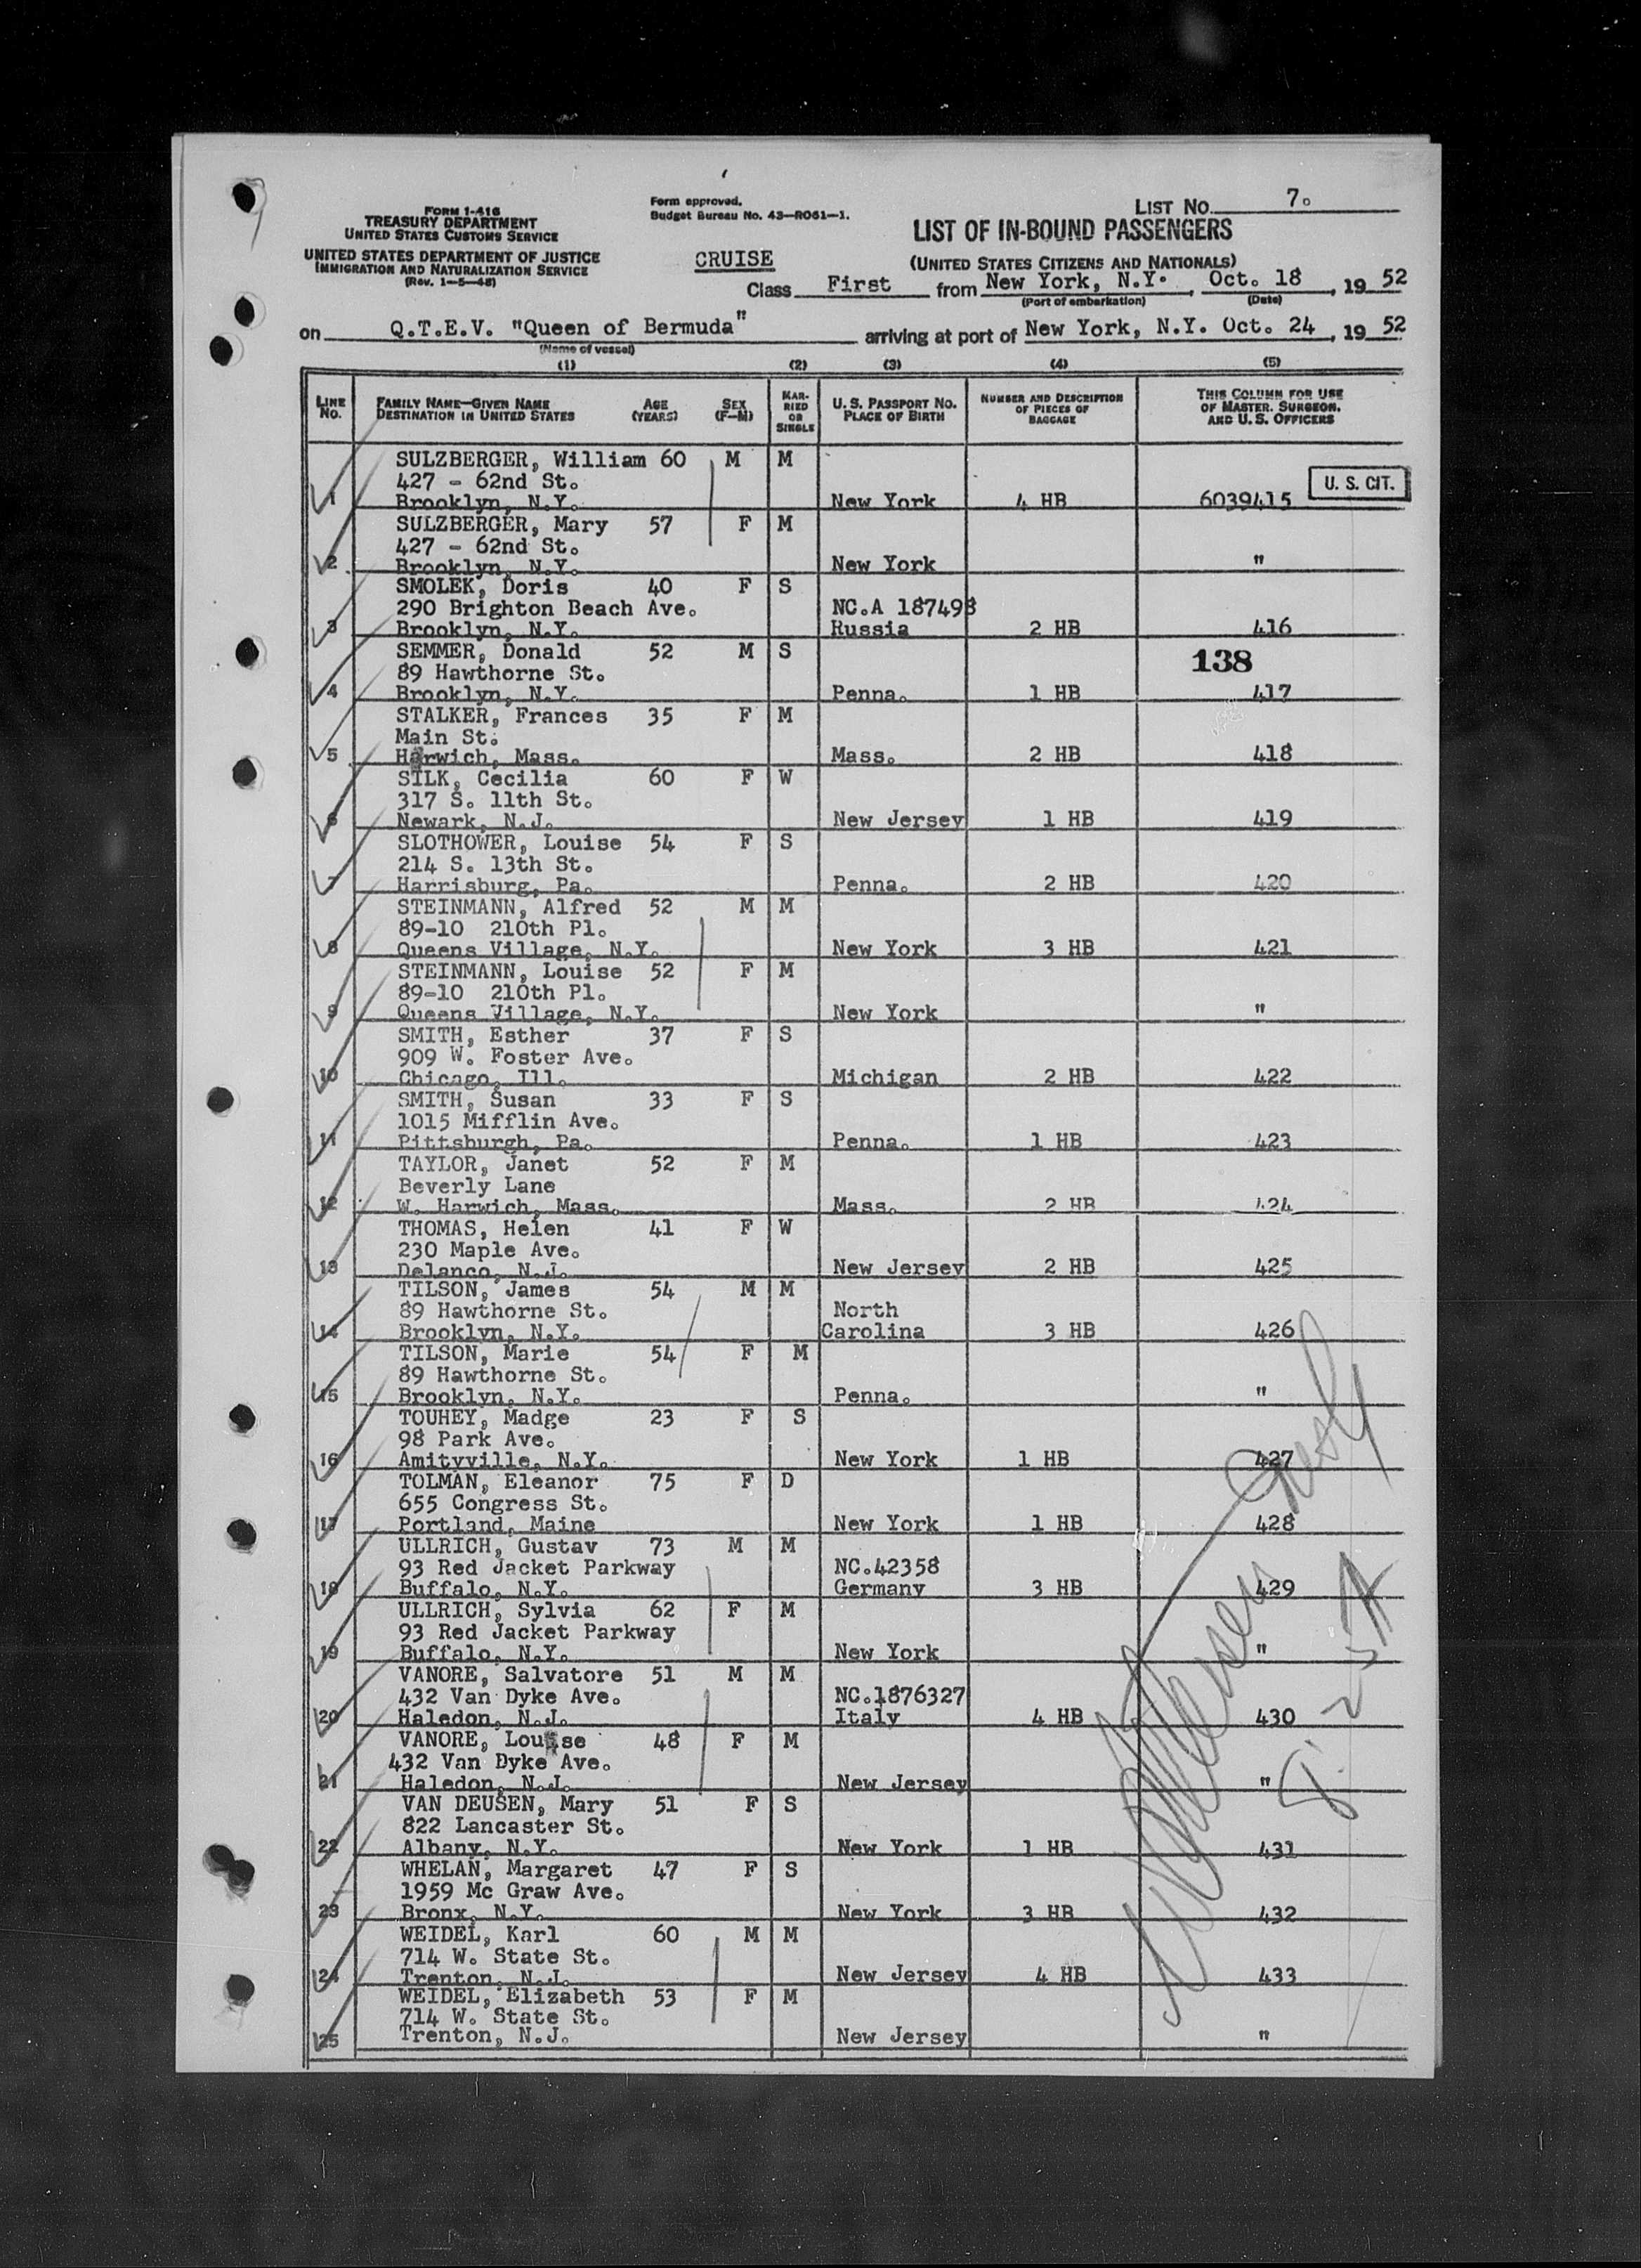 FORM I-416
TREASURY DEPARTMENT
UNITED STATES CUSTOMS SERVICE
UNITED STATES DEPARTMENT OF JUSTICE
IMMIGRATION AND NATURALIZATION SERVICE
(Rev. 1-5-48)
Form approved.
Budget Bureau No. 43-R061-1.
CRUISE
LIST NO. 7.
LIST OF IN-BOUND PASSENGERS
(UNITED STATES CITIZENS AND NATIONALS)
Class First from New York, N.Y. , Oct. 18 , 19 52
(Port of embarkation) (Date)
on Q.T.E.V. "Queen of Bermuda" arriving at port of New York, N.Y. Oct. 24 , 19 52
(Name of vessel)
(1) (2) (3) (4) (5)
LINE No. FAMILY NAME—GIVEN NAME DESTINATION IN UNITED STATES AGE (YEARS) SEX (F—M) MARRIED OR SINGLE U. S. PASSPORT NO. PLACE OF BIRTH NUMBER AND DESCRIPTION OF PIECES OF BAGGAGE THIS COLUMN FOR USE OF MASTER, SURGEON, AND U. S. OFFICERS
SULZBERGER, William 60 M M
427 - 62nd St. U. S. CIT.
1 Brooklyn, N.Y. New York 4 HB 6039415
SULZBERGER, Mary 57 F M
427 - 62nd St.
2 Brooklyn, N.Y. New York "
SMOLEK, Doris 40 F S
290 Brighton Beach Ave. NC.A 187498
3 Brooklyn, N.Y. Russia 2 HB 416
SEMMER, Donald 52 M S 138
89 Hawthorne St.
4 Brooklyn, N.Y. Penna. 1 HB 417
STALKER, Frances 35 F M
Main St.
5 Harwich, Mass. Mass. 2 HB 418
SILK, Cecilia 60 F W
317 S. 11th St.
6 Newark, N.J. New Jersey 1 HB 419
SLOTHOWER, Louise 54 F S
214 S. 13th St.
7 Harrisburg, Pa. Penna. 2 HB 420
STEINMANN, Alfred 52 M M
89-10 210th Pl.
8 Queens Village, N.Y. New York 3 HB 421
STEINMANN, Louise 52 F M
89-10 210th Pl.
9 Queens Village, N.Y. New York "
SMITH, Esther 37 F S
909 W. Foster Ave.
10 Chicago, Ill. Michigan 2 HB 422
SMITH, Susan 33 F S
1015 Mifflin Ave.
11 Pittsburgh, Pa. Penna. 1 HB 423
TAYLOR, Janet 52 F M
Beverly Lane
12 W. Harwich, Mass. Mass. 2 HB 424
THOMAS, Helen 41 F W
230 Maple Ave.
13 Delanco, N.J. New Jersey 2 HB 425
TILSON, James 54 M M
89 Hawthorne St. North
14 Brooklyn, N.Y. Carolina 3 HB 426
TILSON, Marie 54 F M
89 Hawthorne St.
15 Brooklyn, N.Y. Penna. "
TOUHEY, Madge 23 F S
98 Park Ave.
16 Amityville, N.Y. New York 1 HB 427
TOLMAN, Eleanor 75 F D
655 Congress St.
17 Portland, Maine New York 1 HB 428
ULLRICH, Gustav 73 M M
93 Red Jacket Parkway NC.42358
18 Buffalo, N.Y. Germany 3 HB 429
ULLRICH, Sylvia 62 F M
93 Red Jacket Parkway
19 Buffalo, N.Y. New York "
VANORE, Salvatore 51 M M
432 Van Dyke Ave. NC.1876327
20 Haledon, N.J. Italy 4 HB 430
VANORE, Louise 48 F M
432 Van Dyke Ave.
21 Haledon, N.J. New Jersey "
VAN DEUSEN, Mary 51 F S
822 Lancaster St.
22 Albany, N.Y. New York 1 HB 431
WHELAN, Margaret 47 F S
1959 Mc Graw Ave.
23 Bronx, N.Y. New York 3 HB 432
WEIDEL, Karl 60 M M
714 W. State St.
24 Trenton, N.J. New Jersey 4 HB 433
WEIDEL, Elizabeth 53 F M
714 W. State St.
25 Trenton, N.J. New Jersey "